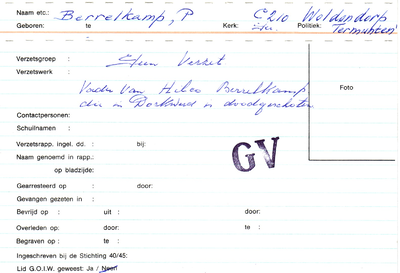 Naam etc.: Berrelkamp, P C210 Woldendorp
Geboren: te Kerk: Politiek: Termunten
Verzetsgroep : Geen Verzet
Verzetswerk : Vader van Hilco Berrelkamp
die in is doodgeschoten
Foto
Contactpersonen:
Schuilnamen :
Verzetsrapp. ingel. dd. : bij:
Naam genoemd in rapp.:
op bladzijde:
GV
Gearresteerd op : door:
Gevangen gezeten in :
Bevrijd op : uit : door:
Overleden op: door: te :
Begraven op : te :
Ingeschreven bij de Stichting 40/45:
Lid G.O.I.W. geweest: Ja / Neen